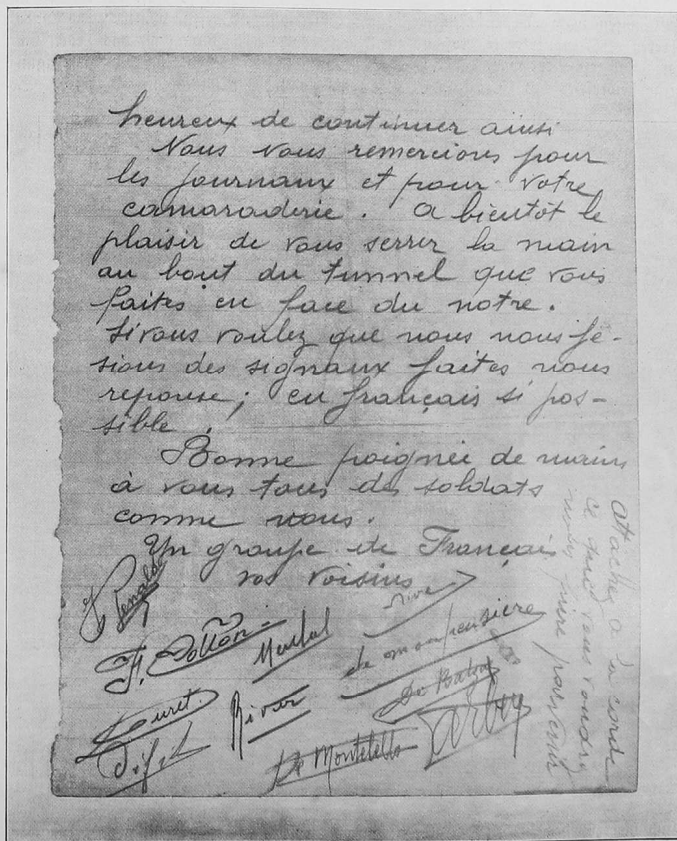 heureux de continuer ainsi
Nous vous remercions pour
les journaux et pour votre
camaraderie. A bientôt le
plaisir de vous serrer la main
au bout du tunnel que vous
faites en face du notre.
Si vous voulez que nous nous fe-
sions des signaux faites nous
reponse; en français si pos-
sible.
Bonne poignée de mains
à vous tous des soldats
comme nous.
Un groupe de Français
vos voisins
F. Cotton
de monpensiere
Rivar
De Montelello
attachez a la corde
ce que vous voudrez
nous faire parvenir